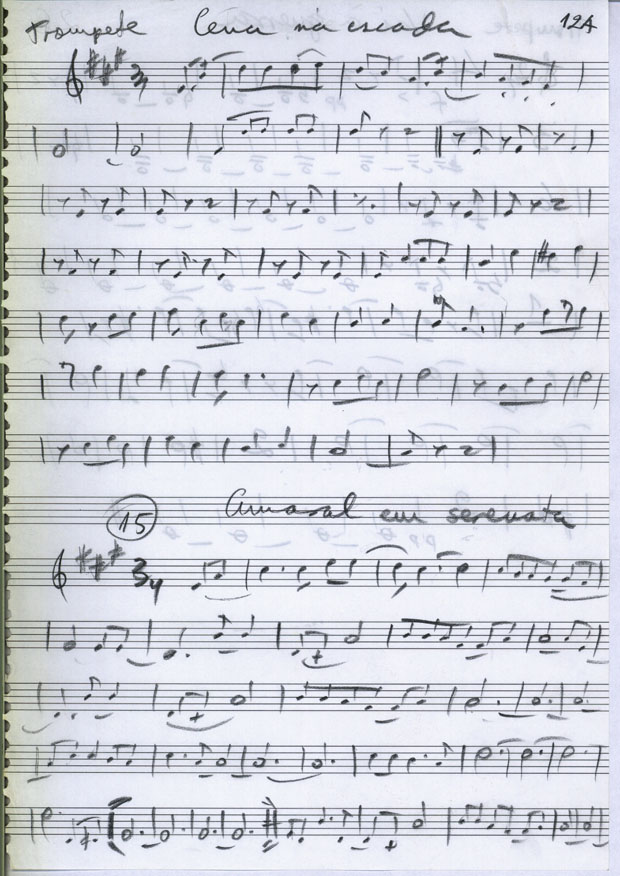 Trompete Cena na escada 12A
15 Amaral em serenata